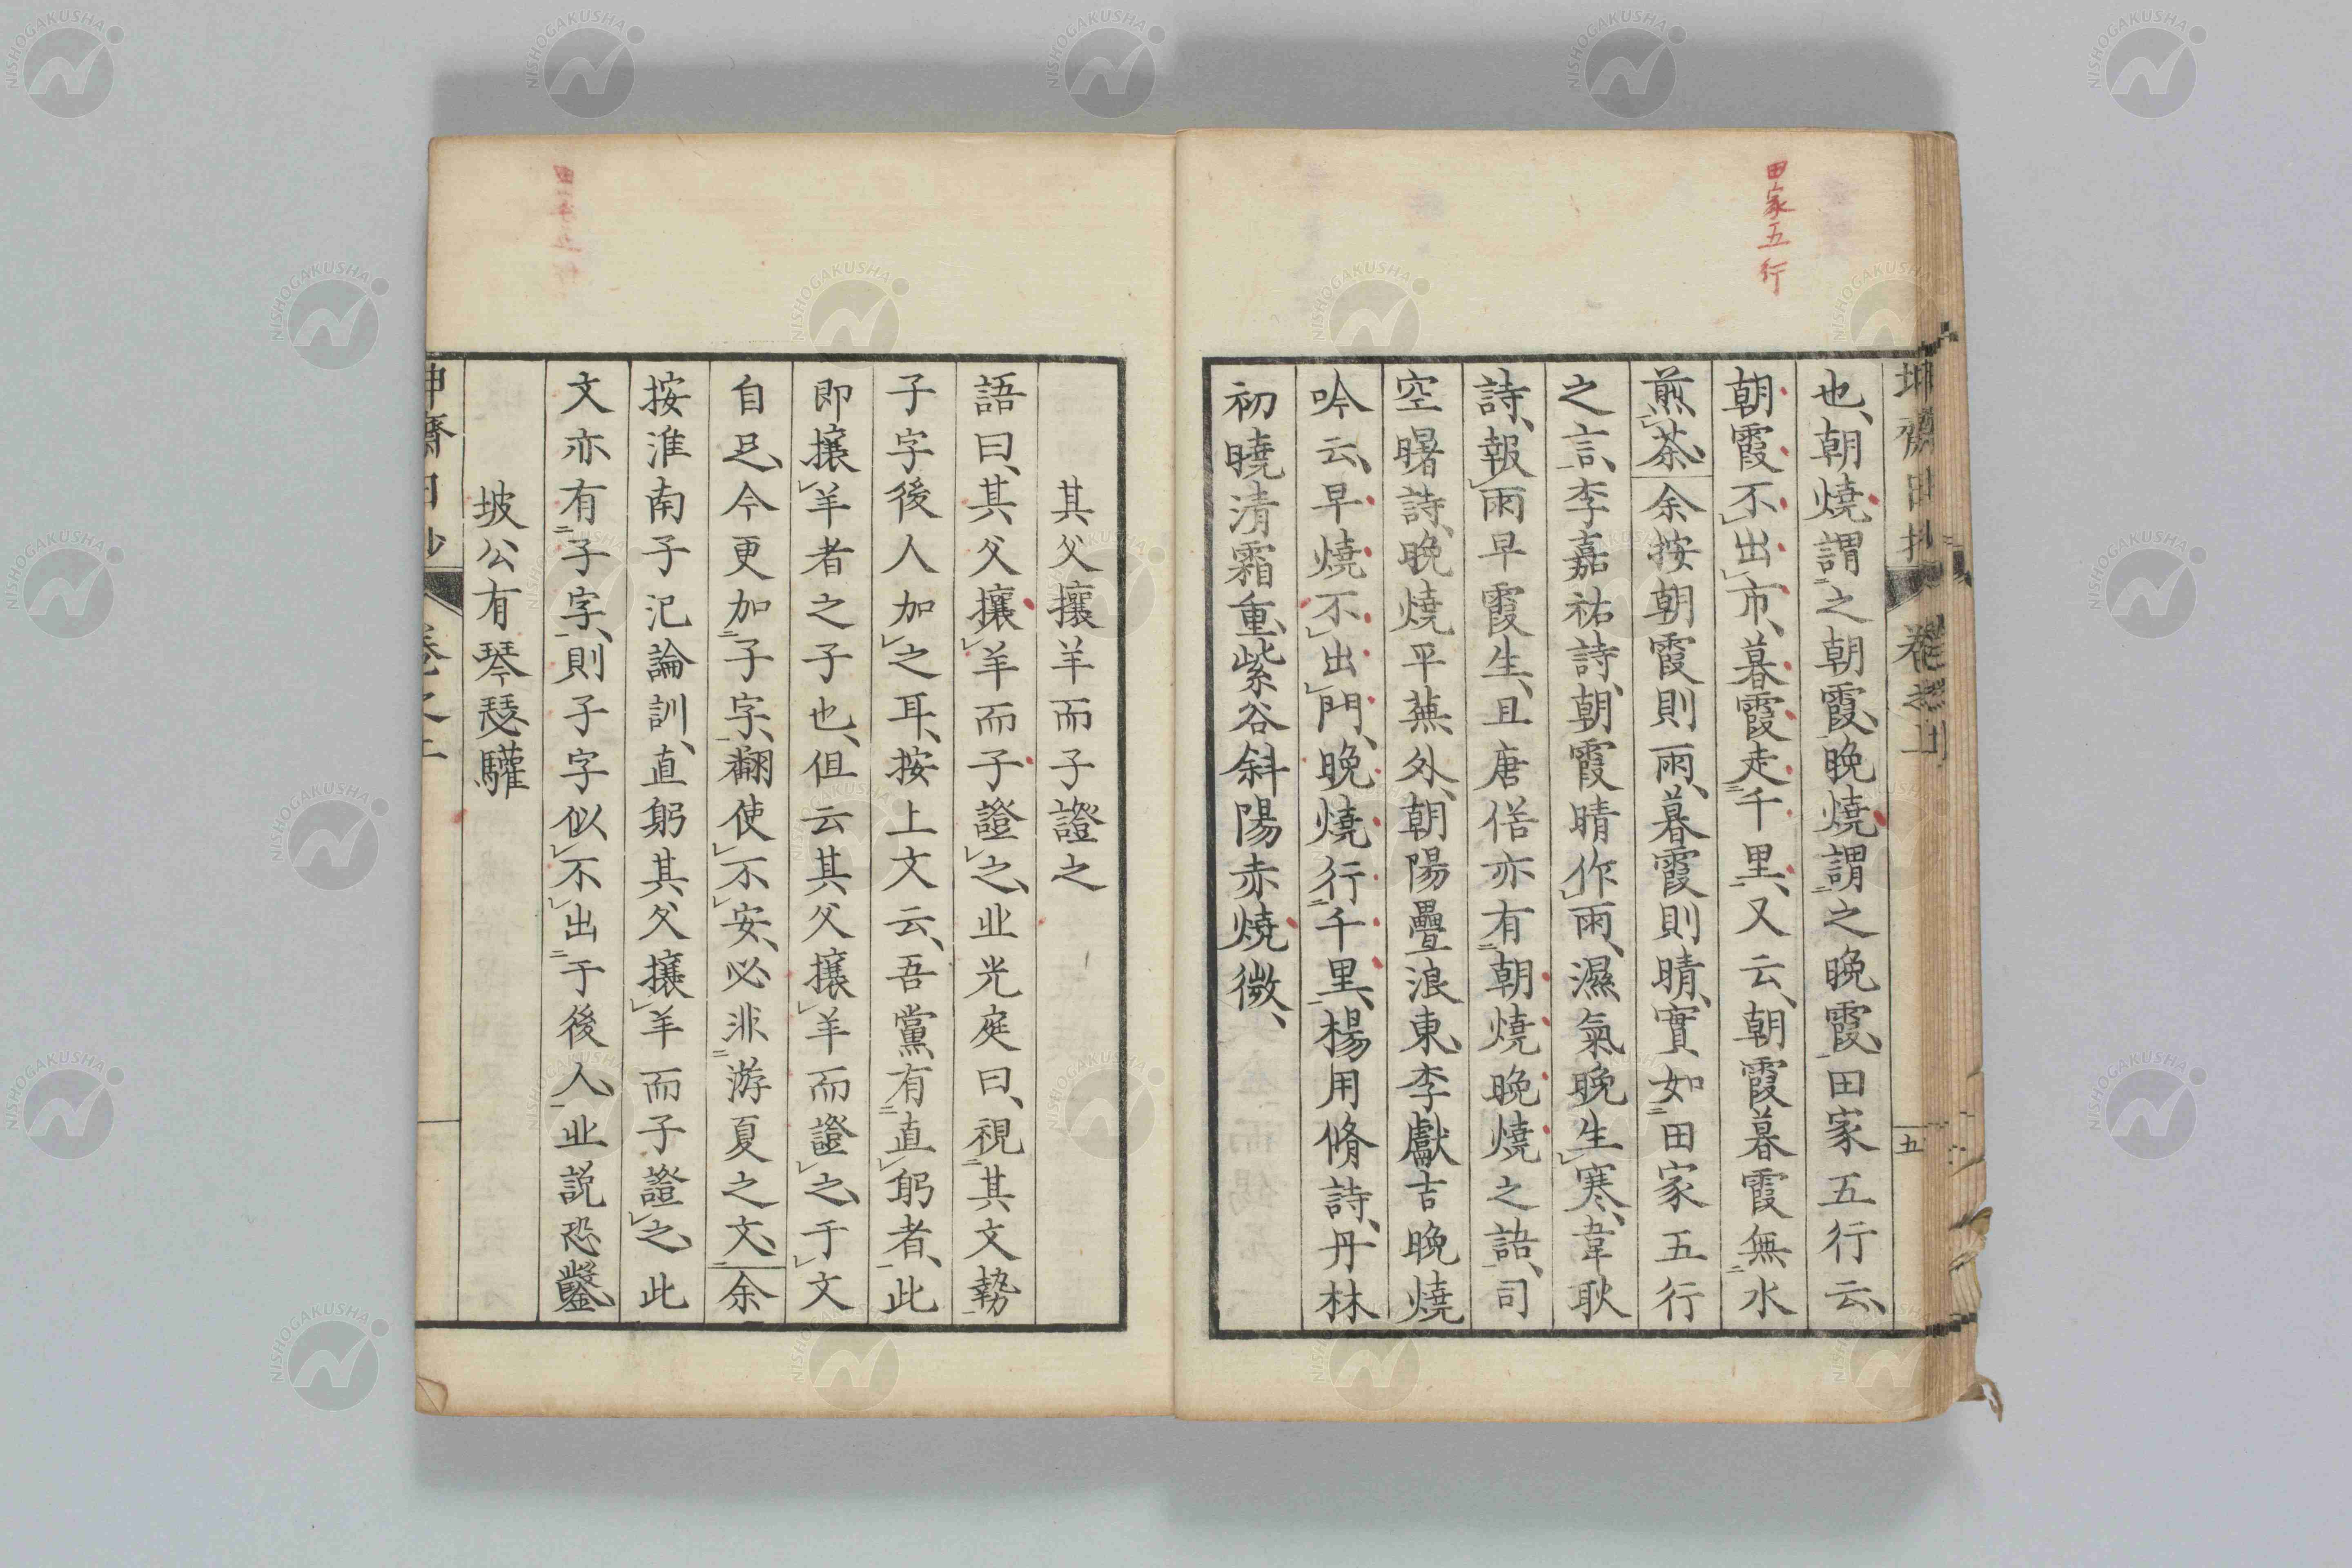 田家五行
坤齋日抄 卷之上 五
也、朝燒謂之朝霞、晩燒謂之晩霞、田家五行云、
朝霞不出市、暮霞走千里、又云、朝霞暮霞無水
煎茶、余按朝霞則雨、暮霞則晴、實如田家五行
之言、李嘉祐詩、朝霞晴作雨、濕氣晩生寒、韋耿
詩、報雨早霞生、且唐偌亦有朝燒晩燒之語、司
空曙詩、晩燒平蕪外、朝陽疊浪東、李獻吉晩燒
吟云、早燒不出門、晩燒行千里、楊用脩詩、丹林
初曉清霜重、紫谷斜陽赤燒微、
其父攘羊而子證之
語曰、其父攘羊而子證之、业光庭曰、視其文勢
子字後人加之耳、按上文云、吾黨有直躬者、此
即攘羊者之子也、但云其父攘羊而證之、于文
自足、今更加子字、翻使不安、必非游夏之文、余
按淮南子氾論訓、直躬其父攘羊而子證之、此
文亦有子字、則子字似不出于後人、业説恐鑿
坡公有琴瑟驩
坤齋日抄 卷之上
NISHOGAKUSHA